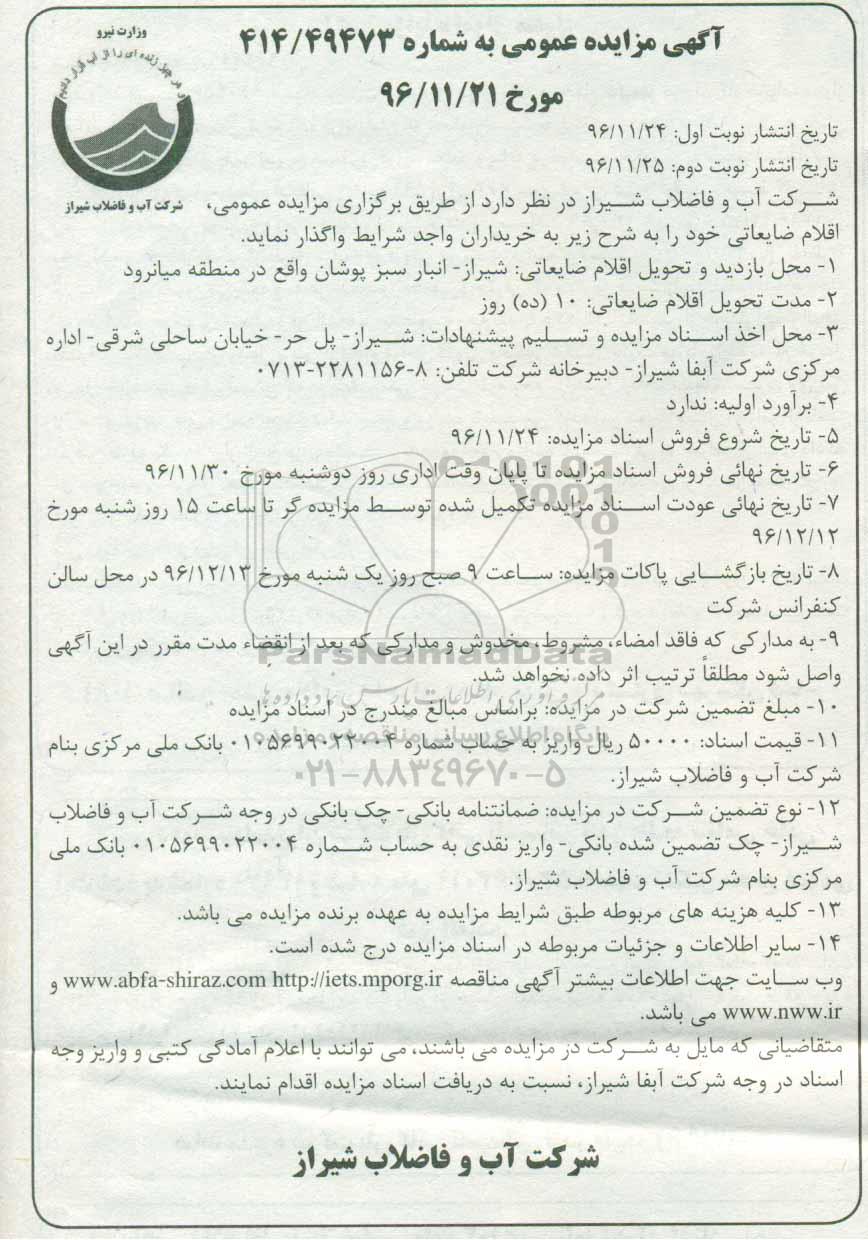 آگهی مزایده عمومی به شماره ۴۱۴/۴۹۴۷۳
مورخ ۹۶/۱۱/۲۱
وزارت نیرو
شرکت آب و فاضلاب شیراز
تاریخ انتشار نوبت اول: ۹۶/۱۱/۲۴
تاریخ انتشار نوبت دوم: ۹۶/۱۱/۲۵
شرکت آب و فاضلاب شیراز در نظر دارد از طریق برگزاری مزایده عمومی،
اقلام ضایعاتی خود را به شرح زیر به خریداران واجد شرایط واگذار نماید.
۱- محل بازدید و تحویل اقلام ضایعاتی: شیراز- انبار سبز پوشان واقع در منطقه میانرود
۲- مدت تحویل اقلام ضایعاتی: ۱۰ (ده) روز
۳- محل اخذ اسناد مزایده و تسلیم پیشنهادات: شیراز- پل حر- خیابان ساحلی شرقی- اداره
مرکزی شرکت آبفا شیراز- دبیرخانه شرکت تلفن: ۸-۲۲۸۱۱۵۶-۰۷۱۳
۴- برآورد اولیه: ندارد
۵- تاریخ شروع فروش اسناد مزایده: ۹۶/۱۱/۲۴
۶- تاریخ نهائی فروش اسناد مزایده تا پایان وقت اداری روز دوشنبه مورخ ۹۶/۱۱/۳۰
۷- تاریخ نهائی عودت اسناد مزایده تکمیل شده توسط مزایده گر تا ساعت ۱۵ روز شنبه مورخ
۹۶/۱۲/۱۲
۸- تاریخ بازگشایی پاکات مزایده: ساعت ۹ صبح روز یک شنبه مورخ ۹۶/۱۲/۱۳ در محل سالن
کنفرانس شرکت
۹- به مدارکی که فاقد امضاء، مشروط، مخدوش و مدارکی که بعد از انقضاء مدت مقرر در این آگهی
واصل شود مطلقاً ترتیب اثر داده نخواهد شد.
۱۰- مبلغ تضمین شرکت در مزایده: براساس مبالغ مندرج در اسناد مزایده
۱۱- قیمت اسناد: ۵۰۰۰۰ ریال واریز به حساب شماره ۰۱۰۵۶۹۹۰۲۲۰۰۴ بانک ملی مرکزی بنام
شرکت آب و فاضلاب شیراز.
۱۲- نوع تضمین شرکت در مزایده: ضمانتنامه بانکی- چک بانکی در وجه شرکت آب و فاضلاب
شیراز- چک تضمین شده بانکی- واریز نقدی به حساب شماره ۰۱۰۵۶۹۹۰۲۲۰۰۴ بانک ملی
مرکزی بنام شرکت آب و فاضلاب شیراز.
۱۳- کلیه هزینه های مربوطه طبق شرایط مزایده به عهده برنده مزایده می باشد.
۱۴- سایر اطلاعات و جزئیات مربوطه در اسناد مزایده درج شده است.
وب سایت جهت اطلاعات بیشتر آگهی مناقصه www.abfa-shiraz.com http://iets.mporg.ir و
www.nww.ir می باشد.
متقاضیانی که مایل به شرکت در مزایده می باشند، می توانند با اعلام آمادگی کتبی و واریز وجه
اسناد در وجه شرکت آبفا شیراز، نسبت به دریافت اسناد مزایده اقدام نمایند.
شرکت آب و فاضلاب شیراز
ParsNamadData
۰۲۱-۸۸۳۴۹۶۷۰-۵